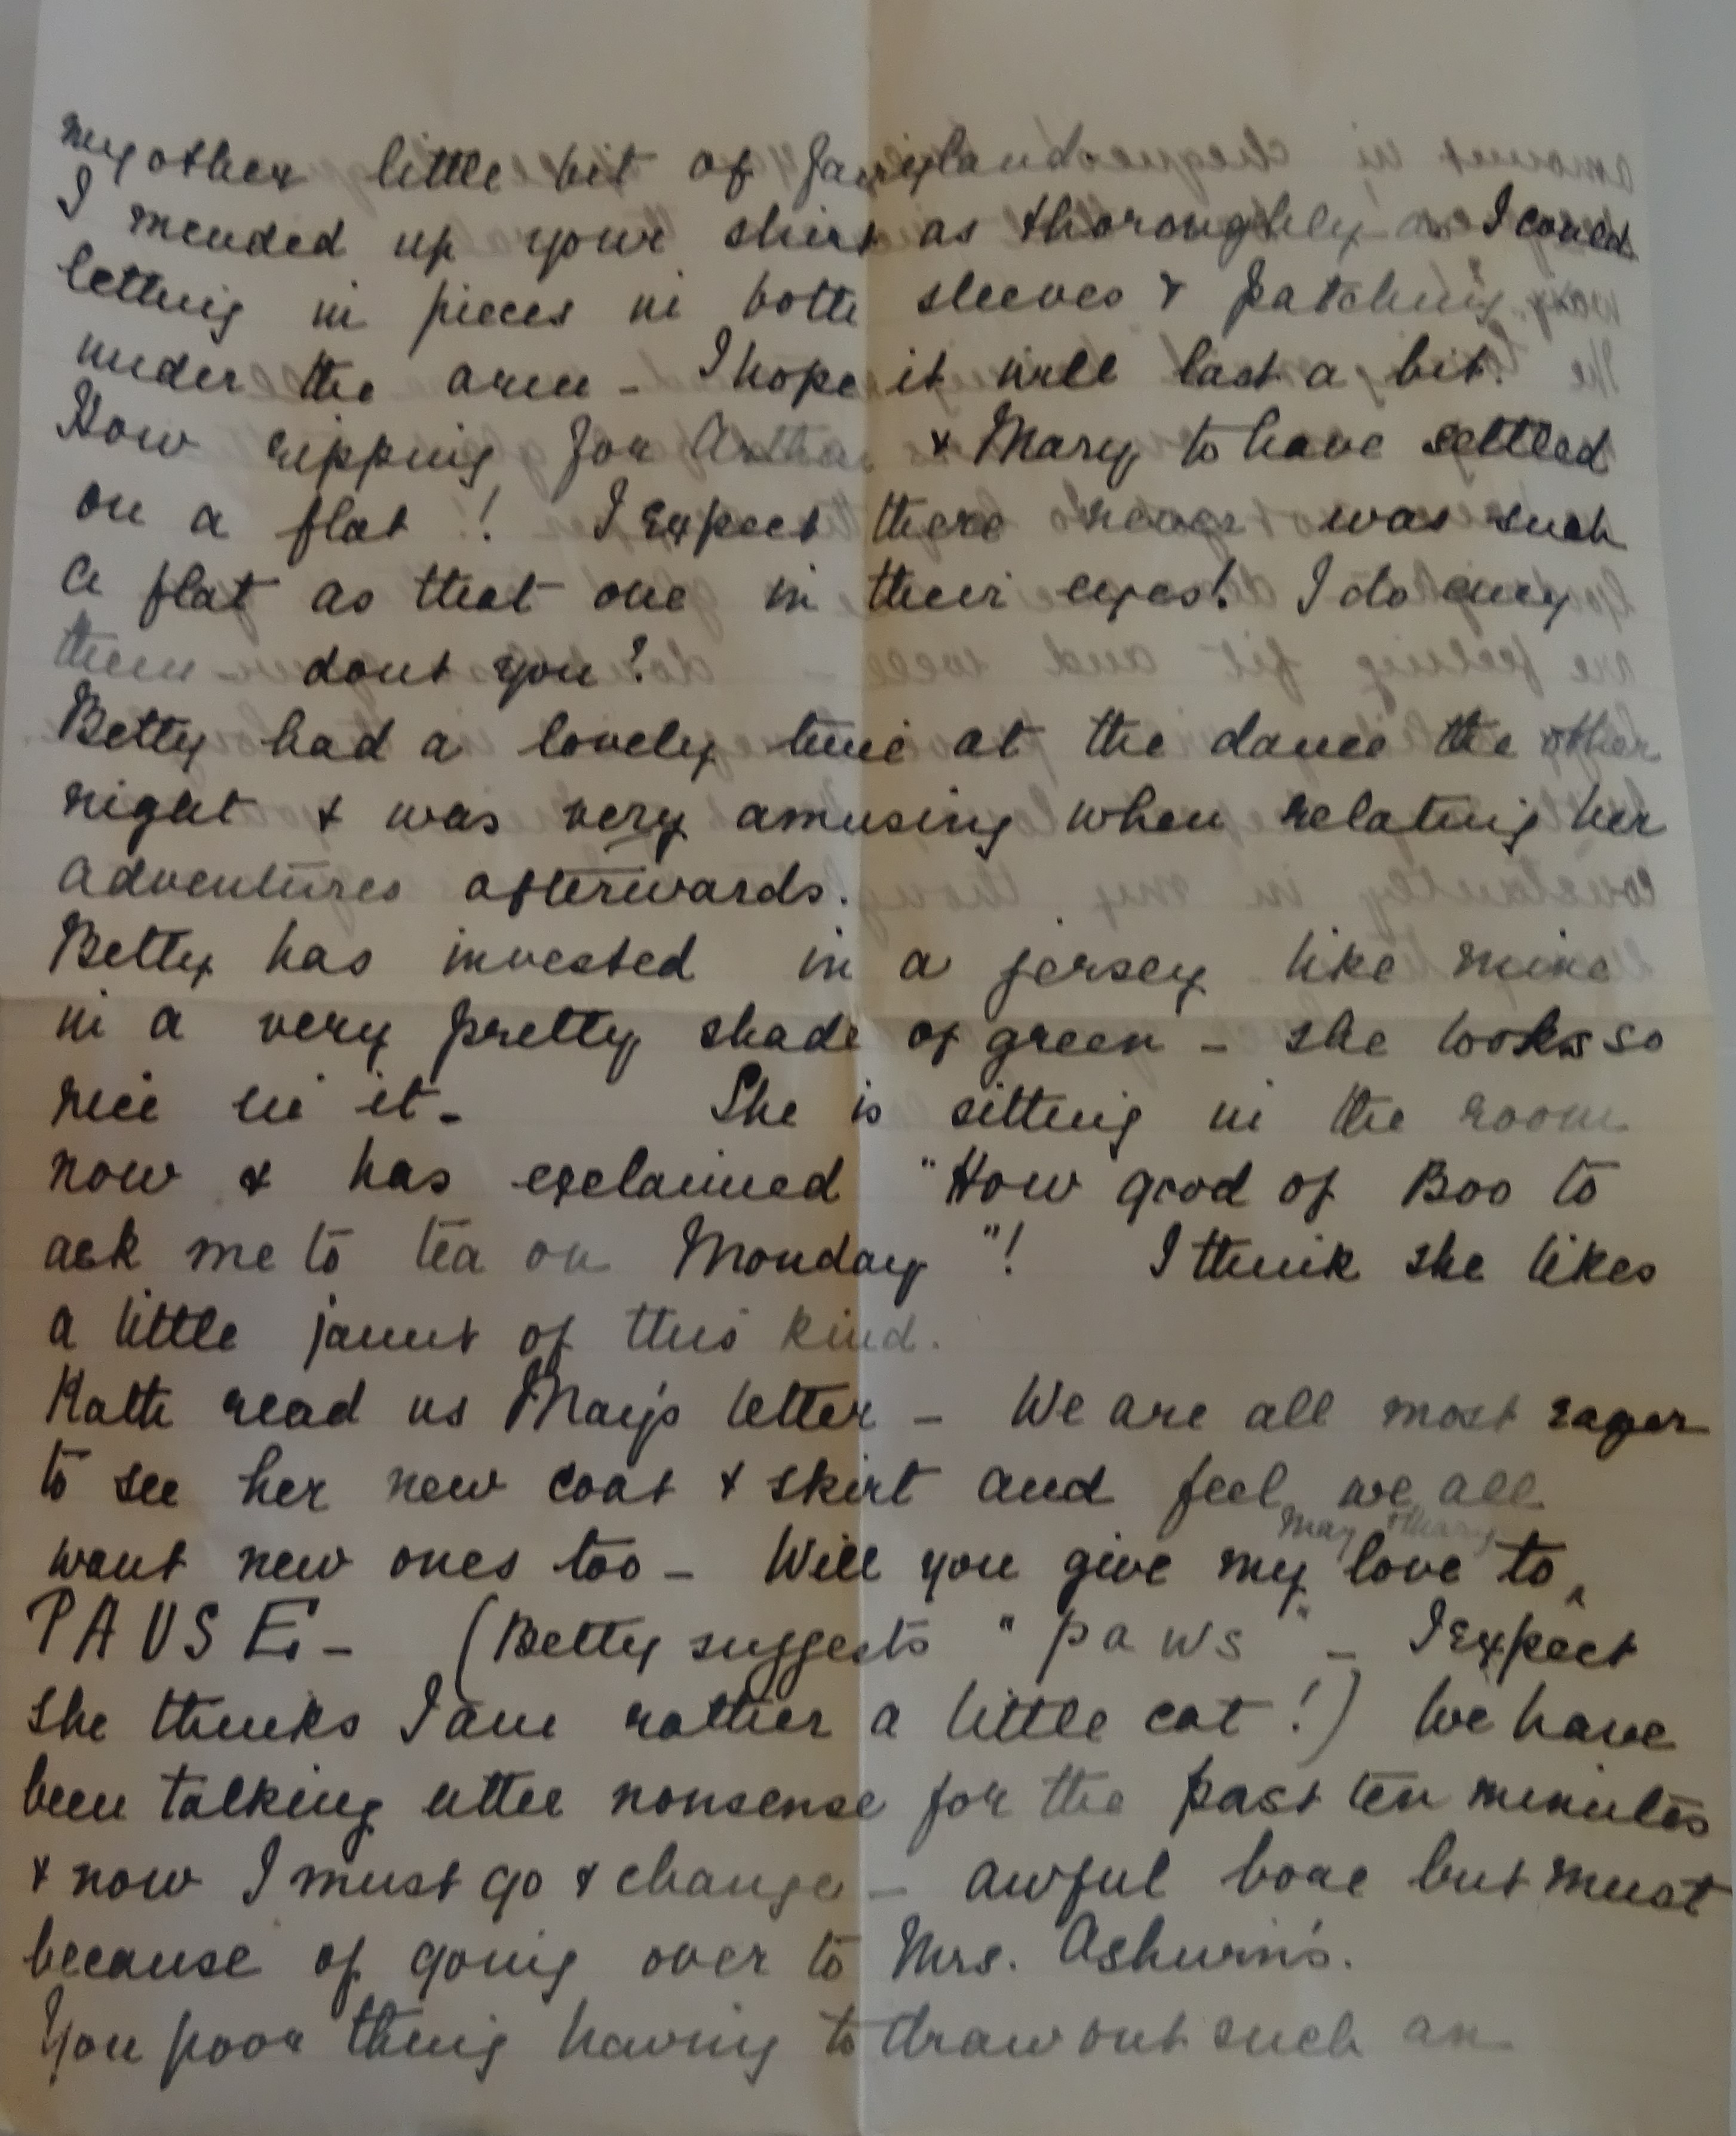 my other little bit of fairyland.
I mended up your shirt as thoroughly as I could
letting in pieces in both sleeves & patching
under the arm - I hope it will last a bit.
How ripping for Arthur & Mary to have settled
on a flat! I expect there never was such
a flat as that one in their eyes! I do envy
them - dont you?
Betty had a lovely time at the dance the other
night & was very amusing when relating her
adventures afterwards.
Betty has invested in a jersey like mine
in a very pretty shade of green - she looks so
nice in it - She is sitting in the room
now & has exclaimed "How good of Boo to
ask me to tea on Monday"! I think she likes
a little jaunt of this kind.
Kath read us May's letter - We are all most eager
to see her new coat & skirt and feel we all
want new ones too - Will you give my love to ‸ May & Mary
PAUSE - (Betty suggests "paws" - I expect
she thinks I am rather a little cat!) We have
been talking utter nonsense for the past ten minutes
& now I must go & change - awful bore but must
because of going over to Mrs. Ashwin's.
You poor thing having to draw out such an